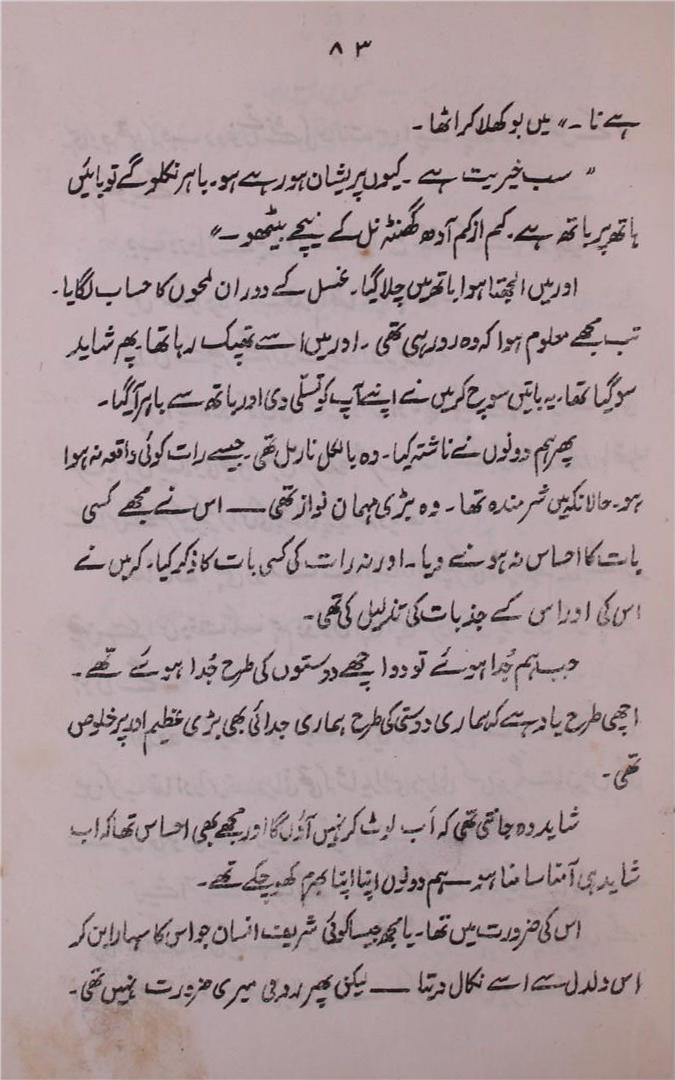 ۸۳
ہے نا ۔" میں بوکھلا کر اٹھا ۔
" سب خیریت ہے ۔ کیوں پریشان ہو رہے ہو ۔ باہر نکلو گے تو بائیں
ہاتھ پر باتھ ہے ۔ کم از کم آدھ گھنٹہ نل کے نیچے بیٹھو ۔"
اور میں الجھتا ہوا باتھ میں چلا گیا ۔ غسل کے دوران لمحوں کا حساب لگایا ۔
تب مجھے معلوم ہوا کہ وہ رو رہی تھی ۔ اور میں اسے تھپک رہا تھا ۔ پھر شاید
سو گیا تھا ۔ یہ باتیں سوچ کر میں نے اپنے آپ کو تسلّی دی اور باتھ سے باہر آ گیا ۔
پھر ہم دونوں نے ناشتہ کیا ۔ وہ بالکل نارمل تھی ۔ جیسے رات کوئی واقعہ نہ ہوا
ہو ۔ حالانکہ میں شرمندہ تھا ۔ وہ بڑی مہمان نواز تھی ۔۔۔ اس نے مجھے کسی
بات کا احساس نہ ہونے دیا ۔ اور نہ رات کی کسی بات کا ذکر کیا ۔ کہ میں نے
اس کی اور اس کے جذبات کی تذلیل کی تھی ۔
جب ہم جُدا ہوئے تو دو اچھے دوستوں کی طرح جُدا ہوئے تھے ۔
اچھی طرح یاد ہے کہ ہماری دوستی کی طرح ہماری جدائی بھی بڑی عظیم اور پر خلوص
تھی ۔
شاید وہ جانتی تھی کہ اَب لوٹ کر نہیں آؤں گا اور مجھے بھی احساس تھا کہ اب
شاید ہی آمنا سامنا ہو ۔۔ ہم دونوں اپنا اپنا بھرم کھو چکے تھے ۔
اس کی ضرورت میں تھا ۔ یا مجھ جیسا کوئی شریف انسان جو اس کا سہارا بن کر
اس دلدل سے اسے نکال دیتا ۔۔۔ لیکن پھر وہ میری ضرورت نہیں تھی ۔